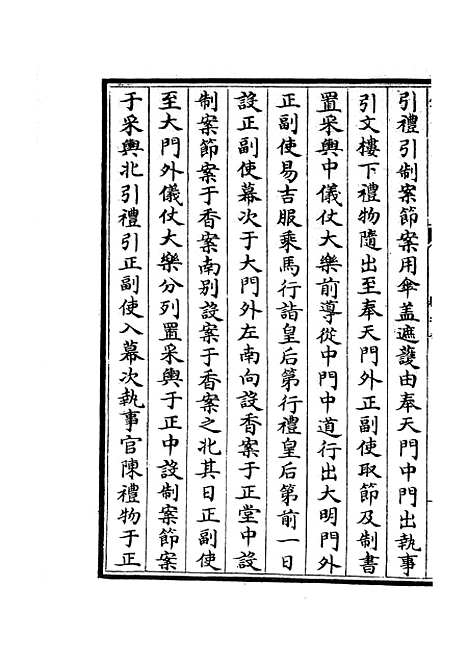 引禮引制案節案用傘蓋遮護由奉天門中門出執事
引文樓下禮物隨出至奉天門外正副使取節及制書
置采輿中儀仗大樂前導從中門中道行出大明門外
正副使易吉服乘馬行詣皇后第行禮皇后第前一日
設正副使幕次于大門外左南向設香案于正堂中設
制案節案于香案南别設案于香案之北其日正副使
至大門外儀仗大樂分列置采輿于正中設制案節案
于采輿北引禮引正副使入幕次執事官陳禮物于正